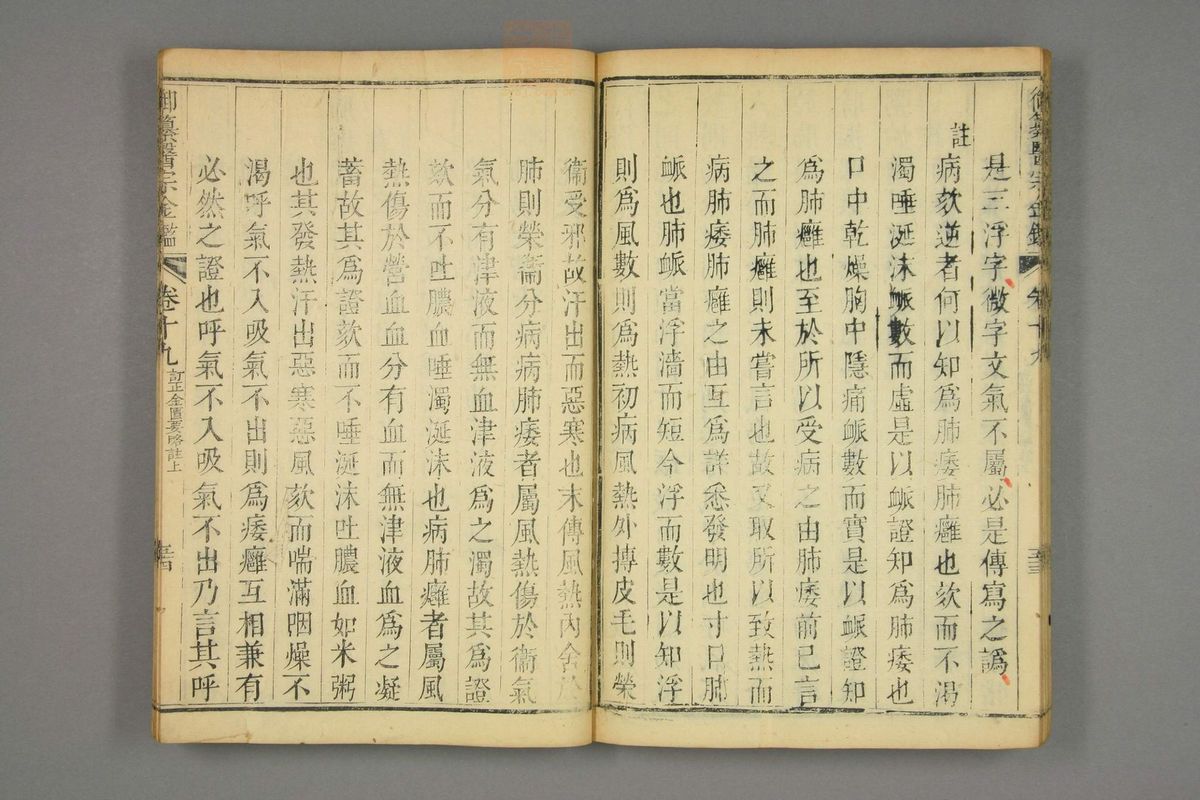 御纂醫宗金鑑 卷十九 至三
是三浮字微字文氣不屬必是傳寫之譌
註
病欬逆者何以知爲肺痿肺癰也欬而不渴
濁唾涎沫脈數而虛是以脈證知爲肺痿也
口中乾燥胸中隱痛脈數而實是以脈證知
爲肺癰也至於所以受病之由肺痿前已言
之而肺癰則未嘗言也故又取所以致熱而
病肺痿肺癰之由互爲詳悉發明也寸口肺
脈也肺脈當浮濇而短今浮而數是以知浮
則爲風數則爲熱初病風熱外摶皮毛則榮
衞受邪故汗出而惡寒也末傳風熱內舍於
肺則榮衞分病病肺痿者屬風熱傷於衞氣
氣分有津液而無血津液爲之濁故其爲證
欬而不吐膿血唾濁涎沫也病肺癰者屬風
熱傷於營血血分有血而無津液血爲之凝
蓄故其爲證欬而不唾涎沫吐膿血如米粥
也其發熱汗出惡寒惡風欬而喘滿咽燥不
渴呼氣不入吸氣不出則爲痿癰互相兼有
必然之證也呼氣不入吸氣不出乃言其呼
御纂醫宗金鑑 卷十九 訂正金匱要略註上